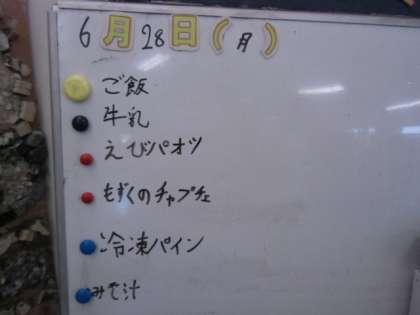 6月28日(月)
ご飯
牛乳
えびパオツ
もずくのチャプチェ
冷凍パイン
みそ汁